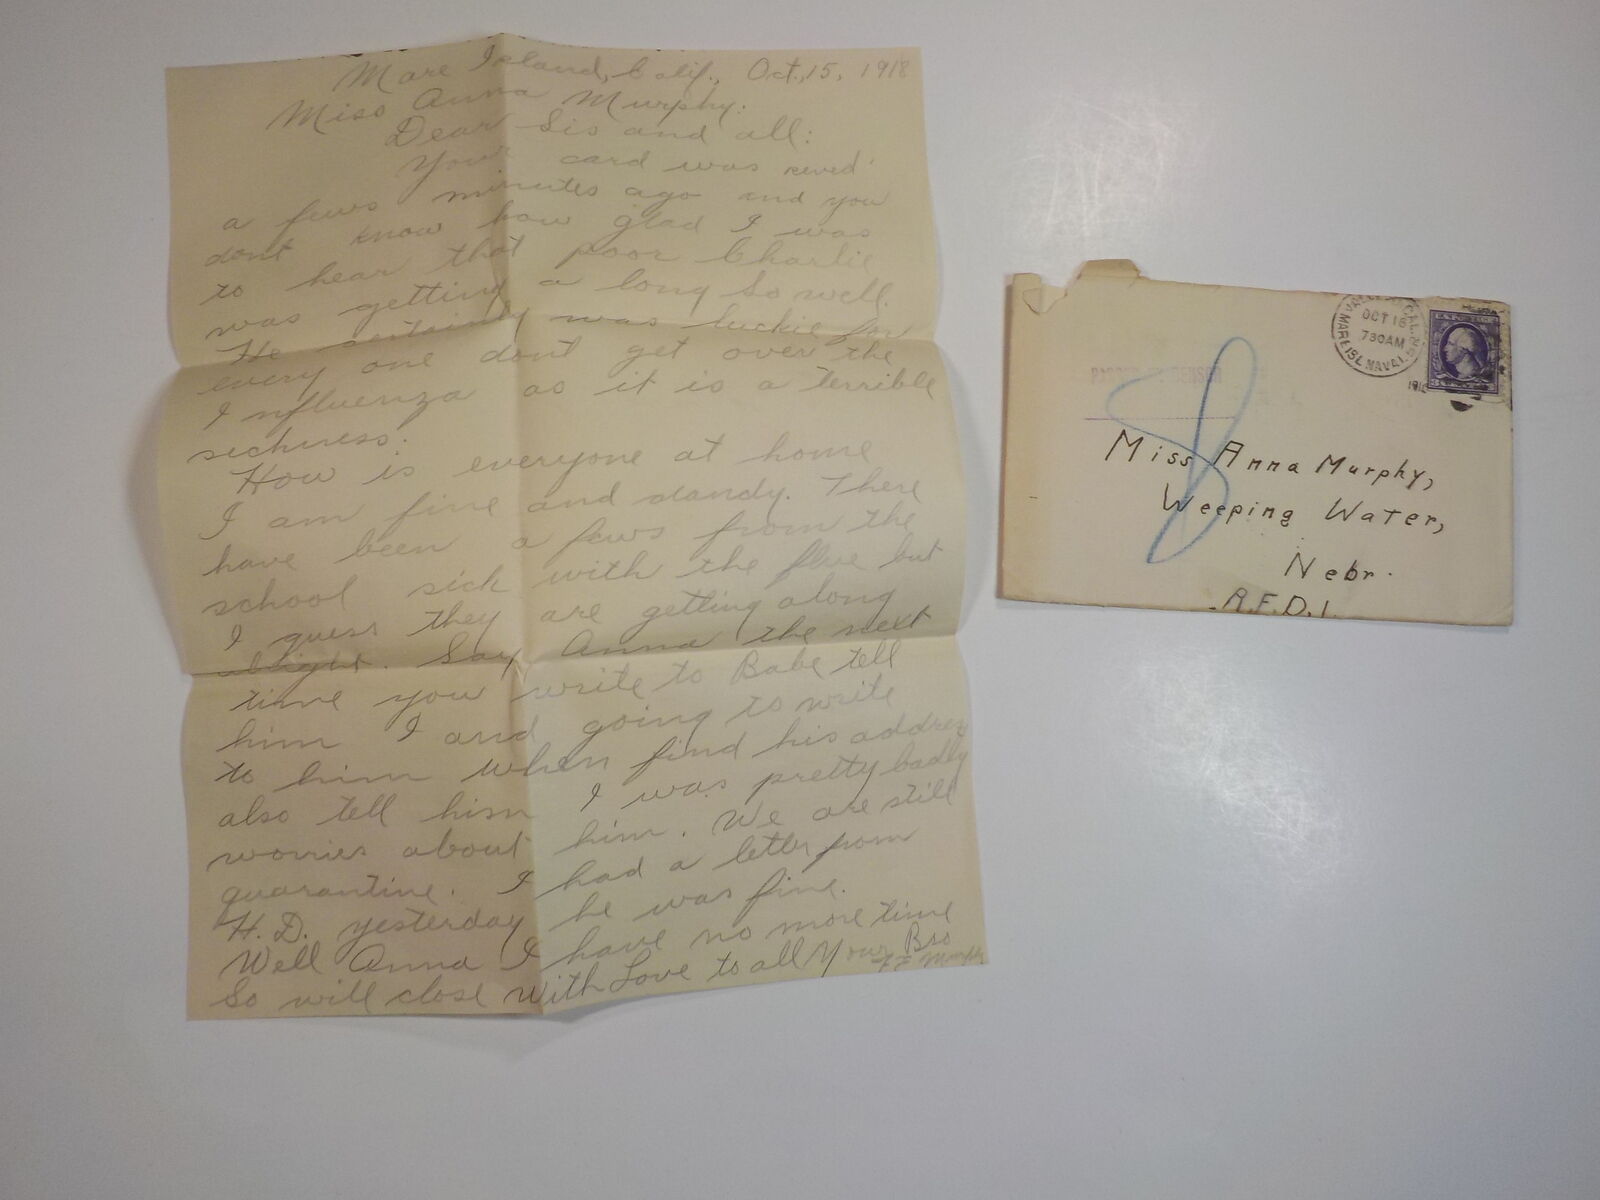 Mare Island, Calif., Oct, 15, 1918
Miss Anna Murphy.
Dear Sis and all:
Your card was recved
a fews minutes ago and you
dont know how glad I was
to hear that poor Charlie
was getting a long So well.
He certainly was luckie for
every one dont get over the
Influenza as it is a terrible
sickness.
How is everyone at home
I am fine and dandy. There
have been a fews from the
school sick with the flue but
I guess they are getting along
alright. Say Anna the next
time you write to Babe tell
him I and going to write
to him when find his address
also tell him I was pretty badly
worries about him. We are still
quarantine. I had a letter from
H. D. yesterday he was fine.
Well Anna I have no more time
So will close With Love to all Your Bro
Murphy
VALLEJO, CAL.
MARE ISL. NAVAL
OCT 16
730AM
PASSED BY CENSOR
8
Miss Anna Murphy,
Weeping Water,
Nebr.
R.F.D. 1.